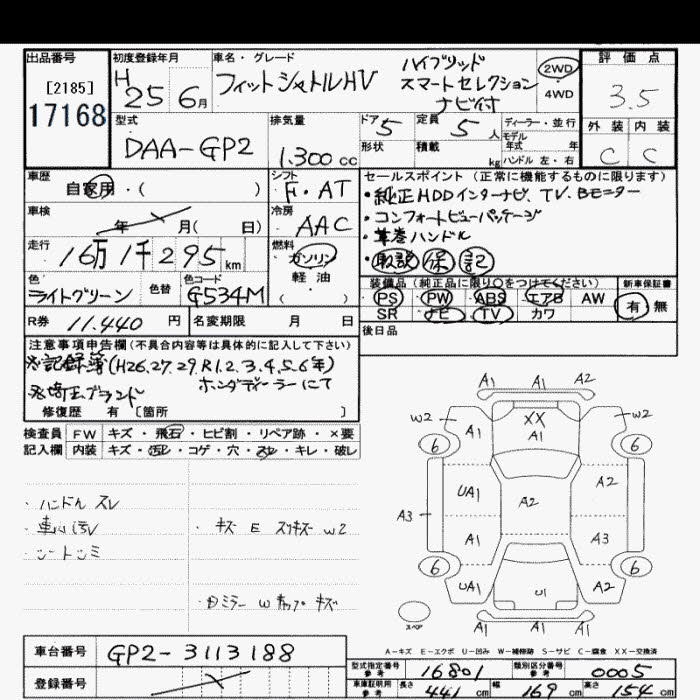 出品番号
[2185]
17168
初度登録年月
H 25 6月
車名・グレード
フィットシャトルHV
ハイブリッド
スマートセレクション
ナビ付
2WD
4WD
評価点
3.5
外装 内装
C C
型式
DAA-GP2
排気量
1.300 cc
ドア 5
定員 5 人
形状
積載 kg
ディーラー・並行
モデル
年式 年
ハンドル 左・右
車歴
自家用・( )
シフト
F・AT
車検
年 月( 日)
冷房
AAC
走行
16万1千295 km
燃料
ガソリン
軽油
( )
色
ライトグリーン
色替
色コード
G534M
R券 11.440 円
名変期限 月 日
セールスポイント (正常に機能するものに限ります)
・純正HDDインターナビ、TV、Bモニター
・コンフォートビューパッケージ
・革巻ハンドル
・取説 保 記
装備品(純正品に限り○をつけてください)
PS PW ABS エアB AW
SR ナビ TV カワ
新車保証書
有 無
後日品
注意事項申告欄(不具合内容等は具体的に記入して下さい)
※記録簿(H26.27.29.R1.2.3.4.5.6年)
ホンダディーラーにて
※埼玉ブランド
修復歴 有 [箇所 ]
検査員 FW キズ・飛石・ヒビ割・リペア跡・×要
記入欄 内装 キズ・汚レ・コゲ・穴・スレ・キレ・破レ
・ハンドルスレ
・車内汚レ
・シートシミ
・キズ E スリキズ W2
・Bミラー W カップ キズ
A1 A1 A2
W2 A1 XX A1 W2
6 6
UA1 A2 A2
A3 A1 A3
6 6
UA1 U1 A2
スペア
A1 A1 A1
A-キズ E-エクボ U-凹み W-補修跡 S-サビ C-腐食 XX-交換済
車台番号 GP2-3113188
登録番号
型式指定番号 参考 16801
類別区分番号 参考 0005
車庫証明用 参考 長さ 441 cm 幅 169 cm 高さ 154 cm